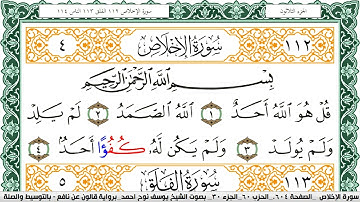 الجزء الثلاثون سورة الإخلاص ١١٢ الفلق ١١٣ الناس ١١٤
١١٢ سُورَةُ الإِخْلَاصِ ٤
بِسْمِ اللَّهِ الرَّحْمَٰنِ الرَّحِيمِ
قُلْ هُوَ اللَّهُ أَحَدٌ ١ اللَّهُ الصَّمَدُ ٢ لَمْ يَلِدْ
وَلَمْ يُولَدْ ٣ وَلَمْ يَكُن لَّهُ كُفُؤًا أَحَدٌ ٤
١١٣ سُورَةُ الْفَلَقِ ٥
سورة الإخلاص - الصفحة ٦٠٤ - الحزب ٦٠ - الجزء ٣٠ - بصوت الشيخ يوسف نوح احمد - برواية قالون عن نافع - بالتوسيط والصلة